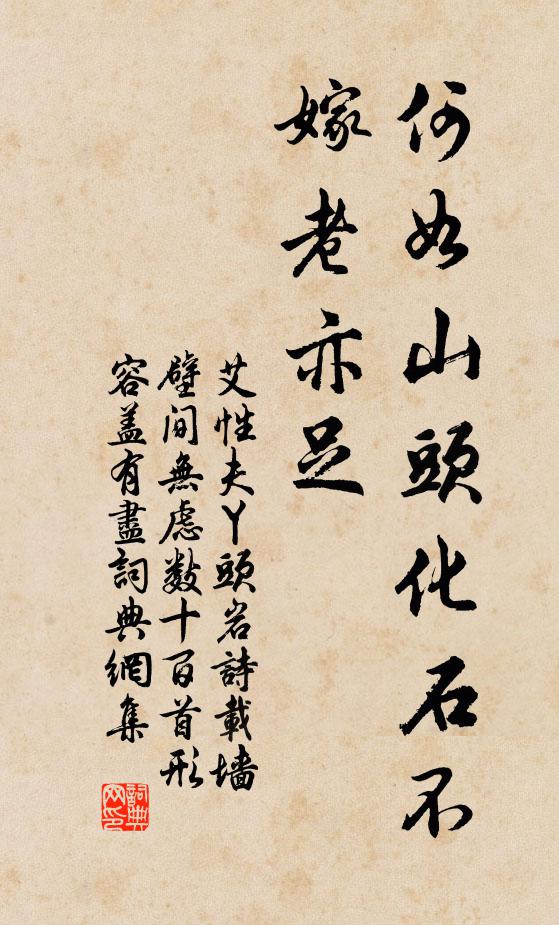 何如山頭化石不
嫁老亦足
艾性夫丫頭岩詩載墻
壁间無慮数十百首形
容盖有盡詞典網集
詞典
网印